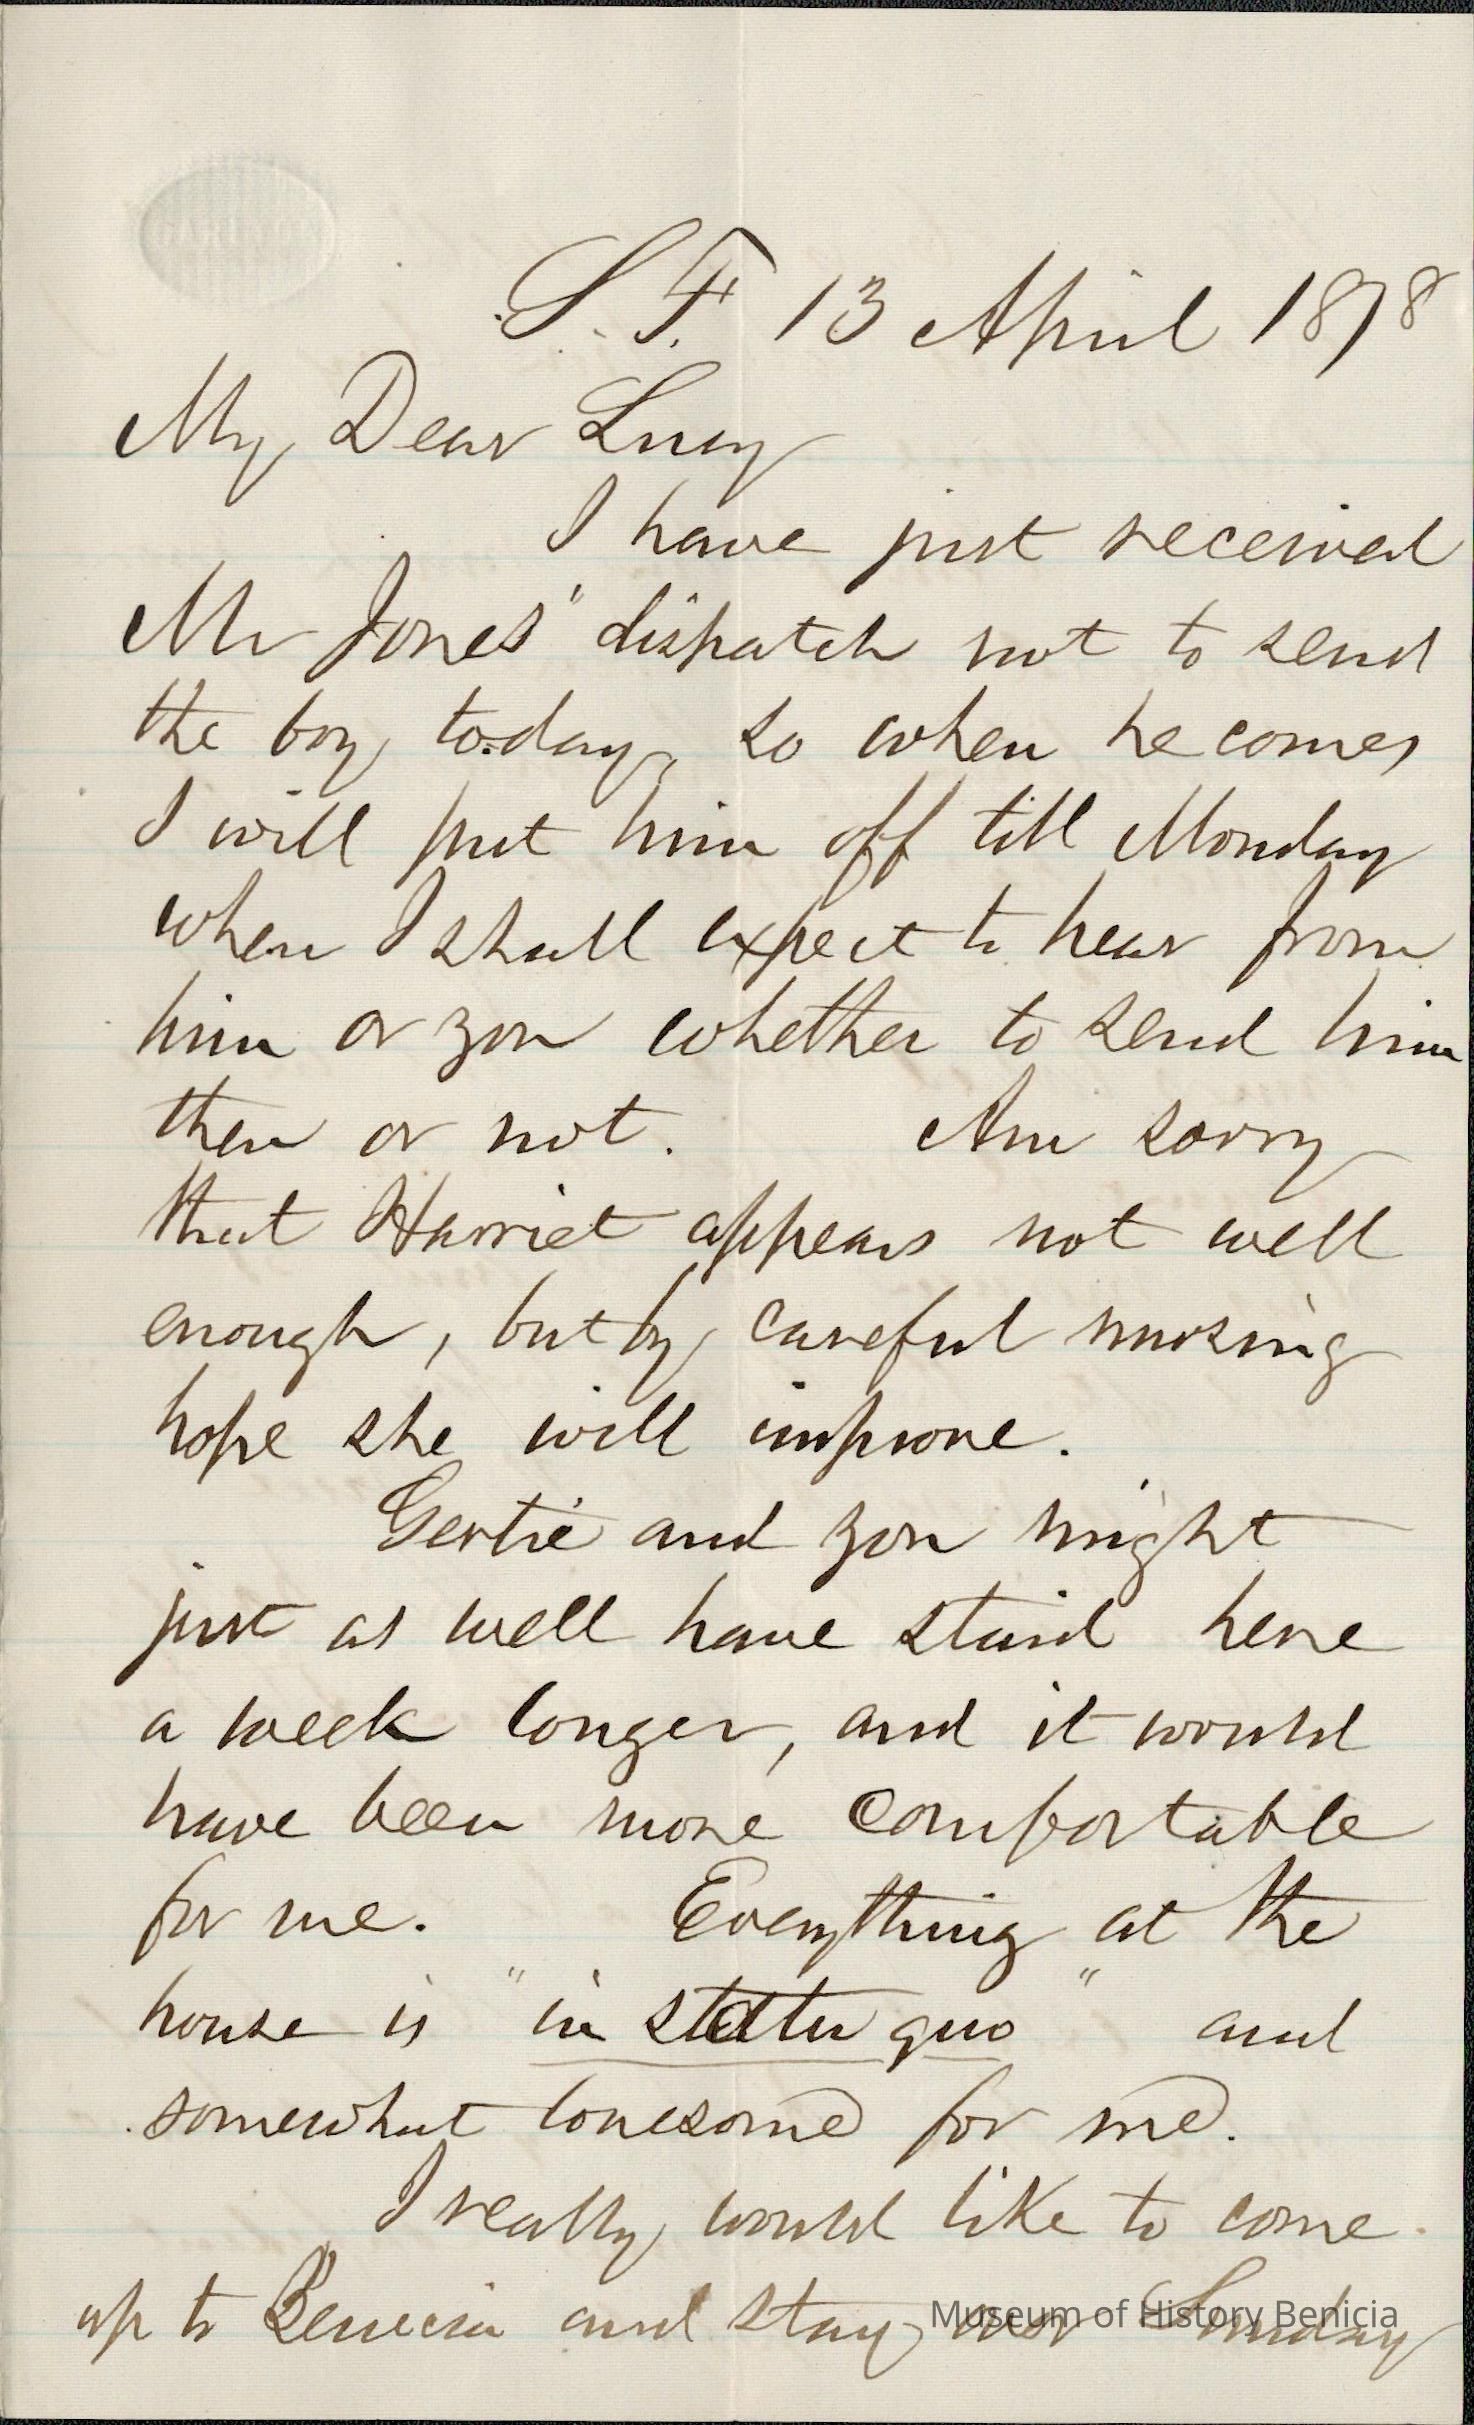 S. F. 13 April 1878
My Dear Lucy
I have just received
Mr Jones' dispatch not to send
the boy to-day, so when he comes
I will put him off till Monday
when I shall expect to hear from
him or you whether to send him
then or not. Am sorry
that Harriet appears not well
enough, but by careful nursing
hope she will improve.
Gertie and you might
just as well have staid here
a week longer, and it would
have been more comfortable
for me. Everything at the
house is "in statu quo" and
somewhat lonesome for me.
I really would like to come
up to Benicia and stay over Sunday
Museum of History Benicia